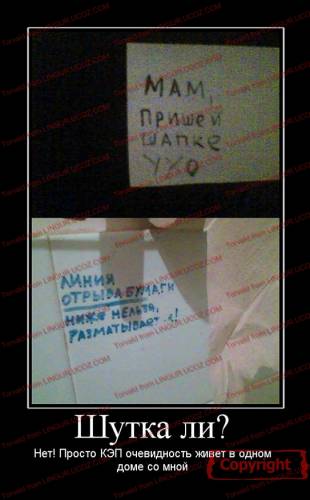 МАМ,
ПРИШЕЙ
ШАПКЕ
УХО
ЛИНИЯ
ОТРЫВА БУМАГИ
НИЖЕ НЕЛЬЗЯ,
РАЗМАТЫВАЕТ-СЯ!
Шутка ли?
Нет! Просто КЭП очевидность живет в одном
доме со мной
Copyright
Torvald from LINGUR.UCOZ.COM